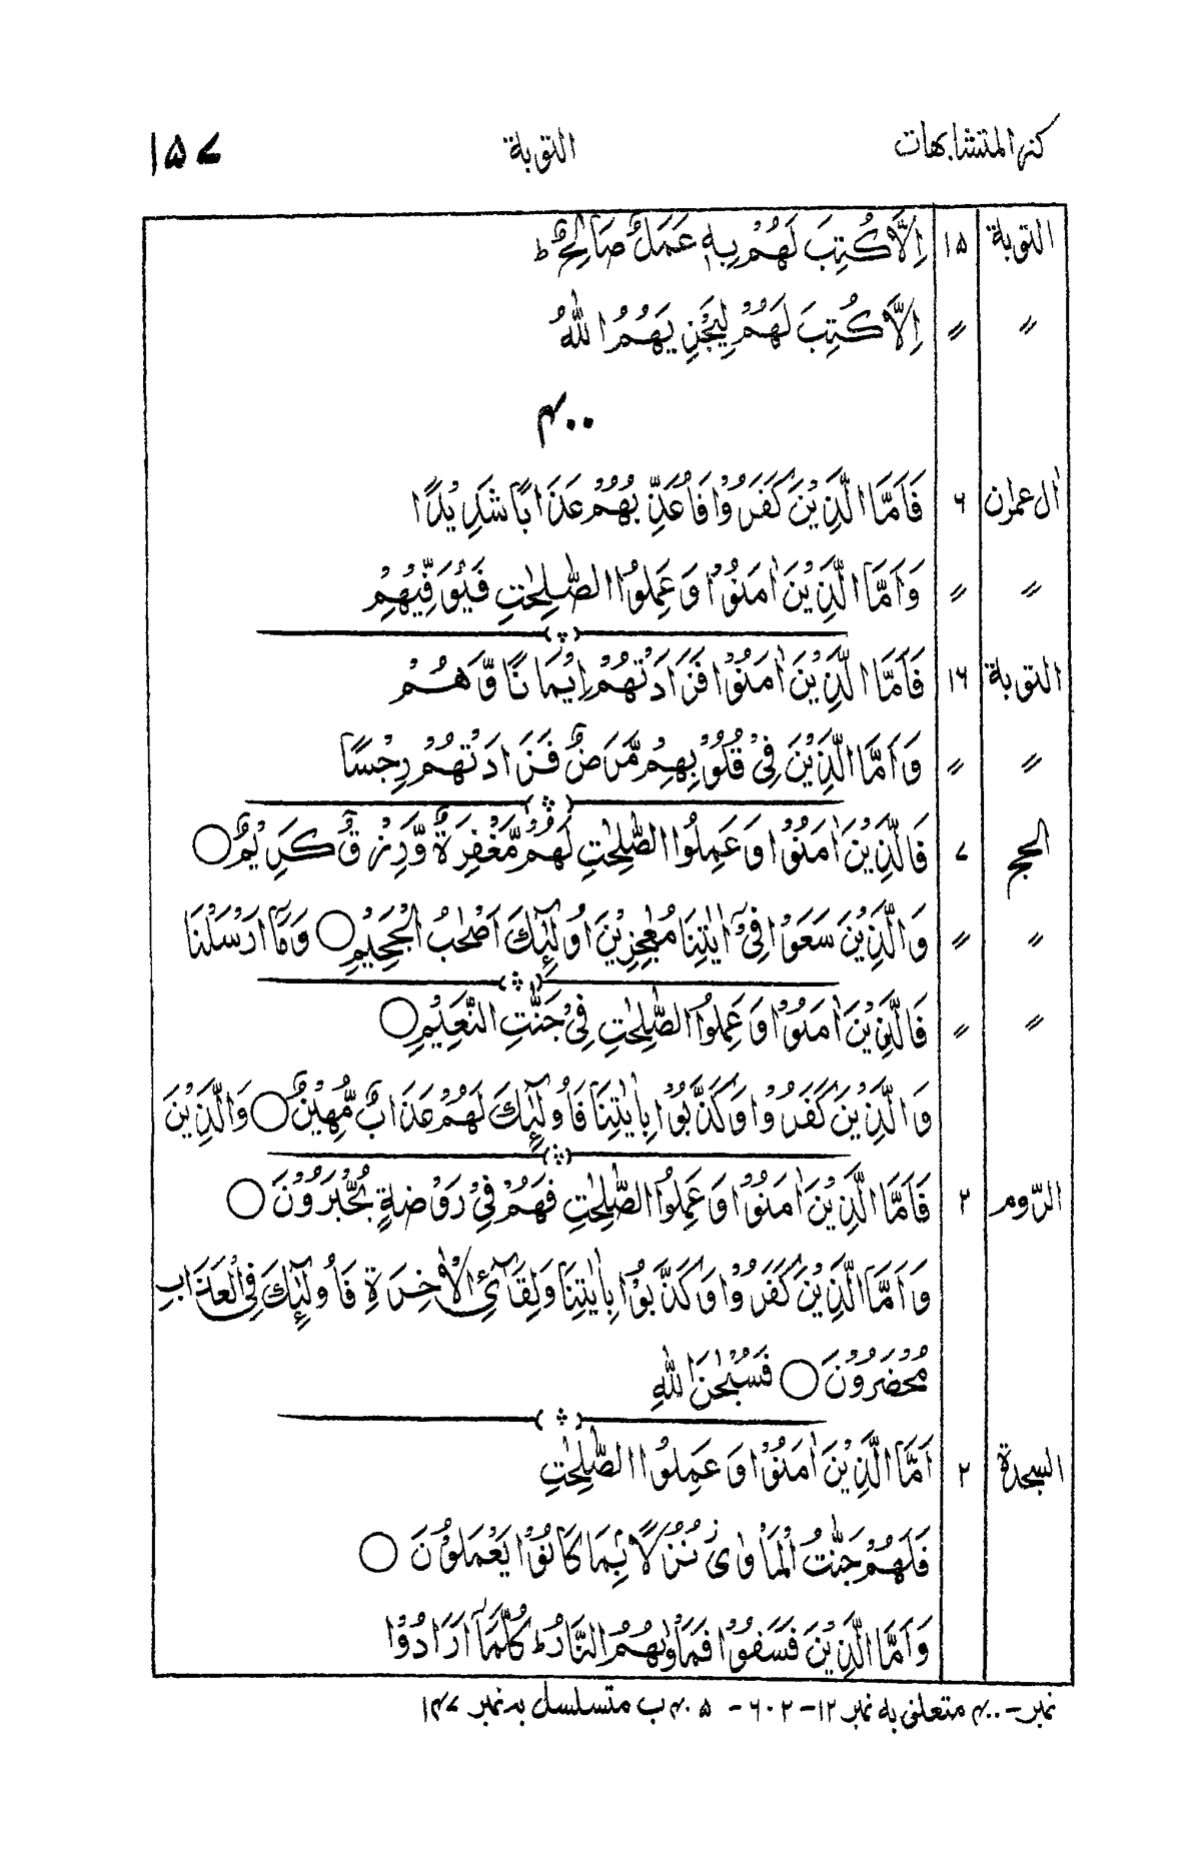 كنز المتشابهات التوبة ۱۵۷
التوبة ۱۵ اِلَّا كُتِبَ لَهُمْ بِهٖ عَمَلٌ صَالِحٌ ؕ
〃 〃 اِلَّا كُتِبَ لَهُمْ لِيَجْزِيَهُمُ اللّٰهُ
۴۰۰
اٰل عمرٰن ۶ فَاَمَّا الَّذِيْنَ كَفَرُوْا فَاُعَذِّبُهُمْ عَذَابًا شَدِيْدًا
〃 〃 وَاَمَّا الَّذِيْنَ اٰمَنُوْا وَعَمِلُوا الصّٰلِحٰتِ فَيُوَفِّيْهِمْ
التوبة ۱۶ فَاَمَّا الَّذِيْنَ اٰمَنُوْا فَزَادَتْهُمْ اِيْمَانًا وَّهُمْ
〃 〃 وَاَمَّا الَّذِيْنَ فِىْ قُلُوْبِهِمْ مَّرَضٌ فَزَادَتْهُمْ رِجْسًا
الحج ۷ فَالَّذِيْنَ اٰمَنُوْا وَعَمِلُوا الصّٰلِحٰتِ لَهُمْ مَّغْفِرَةٌ وَّرِزْقٌ كَرِيْمٌ ○
〃 〃 وَالَّذِيْنَ سَعَوْا فِىْۤ اٰيٰتِنَا مُعٰجِزِيْنَ اُولٰٓئِكَ اَصْحٰبُ الْجَحِيْمِ ○ وَمَاۤ اَرْسَلْنَا
〃 〃 فَالَّذِيْنَ اٰمَنُوْا وَعَمِلُوا الصّٰلِحٰتِ فِىْ جَنّٰتِ النَّعِيْمِ ○
وَالَّذِيْنَ كَفَرُوْا وَكَذَّبُوْا بِاٰيٰتِنَا فَاُولٰٓئِكَ لَهُمْ عَذَابٌ مُّهِيْنٌ ○ وَالَّذِيْنَ
الرّوم ۲ فَاَمَّا الَّذِيْنَ اٰمَنُوْا وَعَمِلُوا الصّٰلِحٰتِ فَهُمْ فِىْ رَوْضَةٍ يُّحْبَرُوْنَ ○
وَاَمَّا الَّذِيْنَ كَفَرُوْا وَكَذَّبُوْا بِاٰيٰتِنَا وَلِقَآئِ الْاٰخِرَةِ فَاُولٰٓئِكَ فِى الْعَذَابِ
مُحْضَرُوْنَ ○ فَسُبْحٰنَ اللّٰهِ
السجدة ۲ اَمَّا الَّذِيْنَ اٰمَنُوْا وَعَمِلُوا الصّٰلِحٰتِ
فَلَهُمْ جَنّٰتُ الْمَاْوٰى نُزُلًا ۢبِمَا كَانُوْا يَعْمَلُوْنَ ○
وَاَمَّا الَّذِيْنَ فَسَقُوْا فَمَاْوٰىهُمُ النَّارُ ؕ كُلَّمَاۤ اَرَادُوْۤا
نمبر-۴۰۰ متعلق به نمبر ۱۲-۶۰۲- ۴۰۵ ب متسلسل به نمبر ۱۴۷